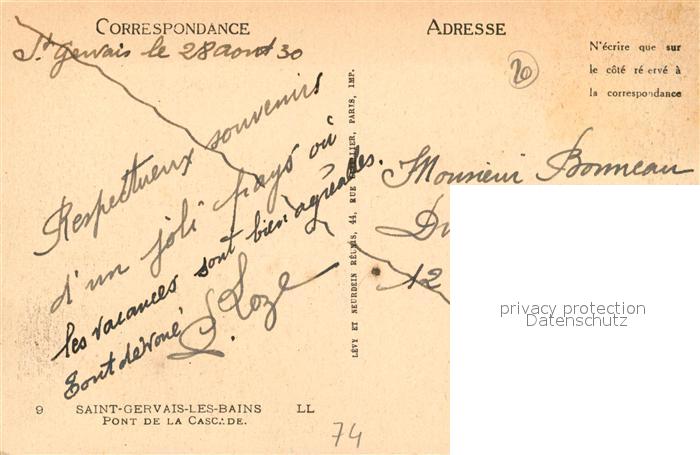 CORRESPONDANCE
St Gervais le 28 aout 30
Respectueux souvenirs
d'un joli pays où
les vacances sont bien agréables.
Tout dévoué
Loze
9 SAINT-GERVAIS-LES-BAINS LL
PONT DE LA CASCADE.
74
LÉVY ET NEURDEIN RÉUNIS, 44, RUE LETELLIER, PARIS, IMP.
ADRESSE
20
N'écrire que sur
le côté réservé à
la correspondance
Monsieur Bonneau
12
privacy protection
Datenschutz